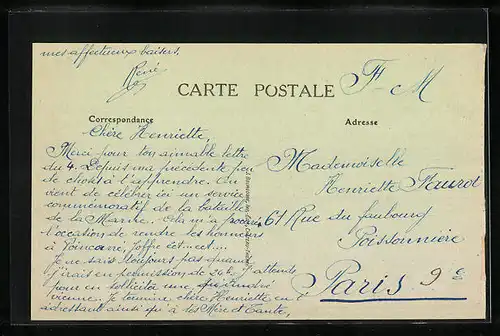 mes affectueux baisers.
René
CARTE POSTALE
F M
Correspondance
Adresse
Chère Henriette,
Merci pour ton aimable lettre
du 4. Depuis ma précédente peu
de choses à t'apprendre. On
vient de célébrer ici un service
commémoratif de la bataille
de la Marne. Cela m'a procuré
l'occasion de rendre les honneurs
à Poincaré, Joffre etc...etc...
Je ne sais toujours pas quand
j'irais en permission de 24h. J'attends
pour en solliciter une que André
vienne. Je termine chère Henriette en t'
adressant ainsi qu'à tes Mère et Tante,
Mademoiselle
Henriette
61 Rue du faubourg
Poissonnière
Paris 9e